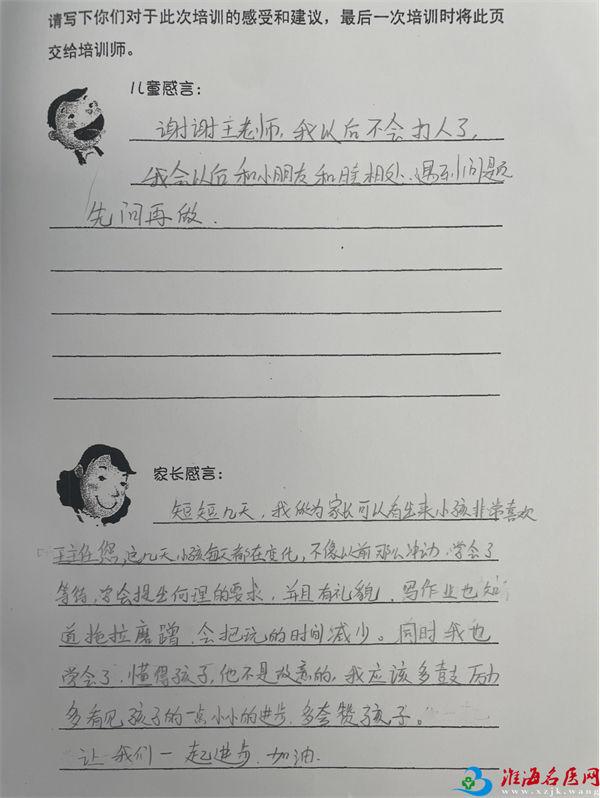 请写下你们对于此次培训的感受和建议，最后一次培训时将此页
交给培训师。
儿童感言：
谢谢王老师，我以后不会打人了，
我会以后和小朋友和睦相处.遇到问题
先问再做.
家长感言：
短短几天，我做为家长可以看出来小孩非常喜欢
王主任您，这几天小孩每天都在变化，不像以前那么冲动.学会了
等待，学会提出合理的要求，并且有礼貌，写作业也知
道拖拉磨蹭.会把玩的时间减少。同时我也
学会了.懂得孩子，他不是故意的，我应该多鼓励
多看见孩子的一点小小的进步.多夸赞孩子。
让我们一起进步.加油.
淮海名医网
www.xzjk.wang